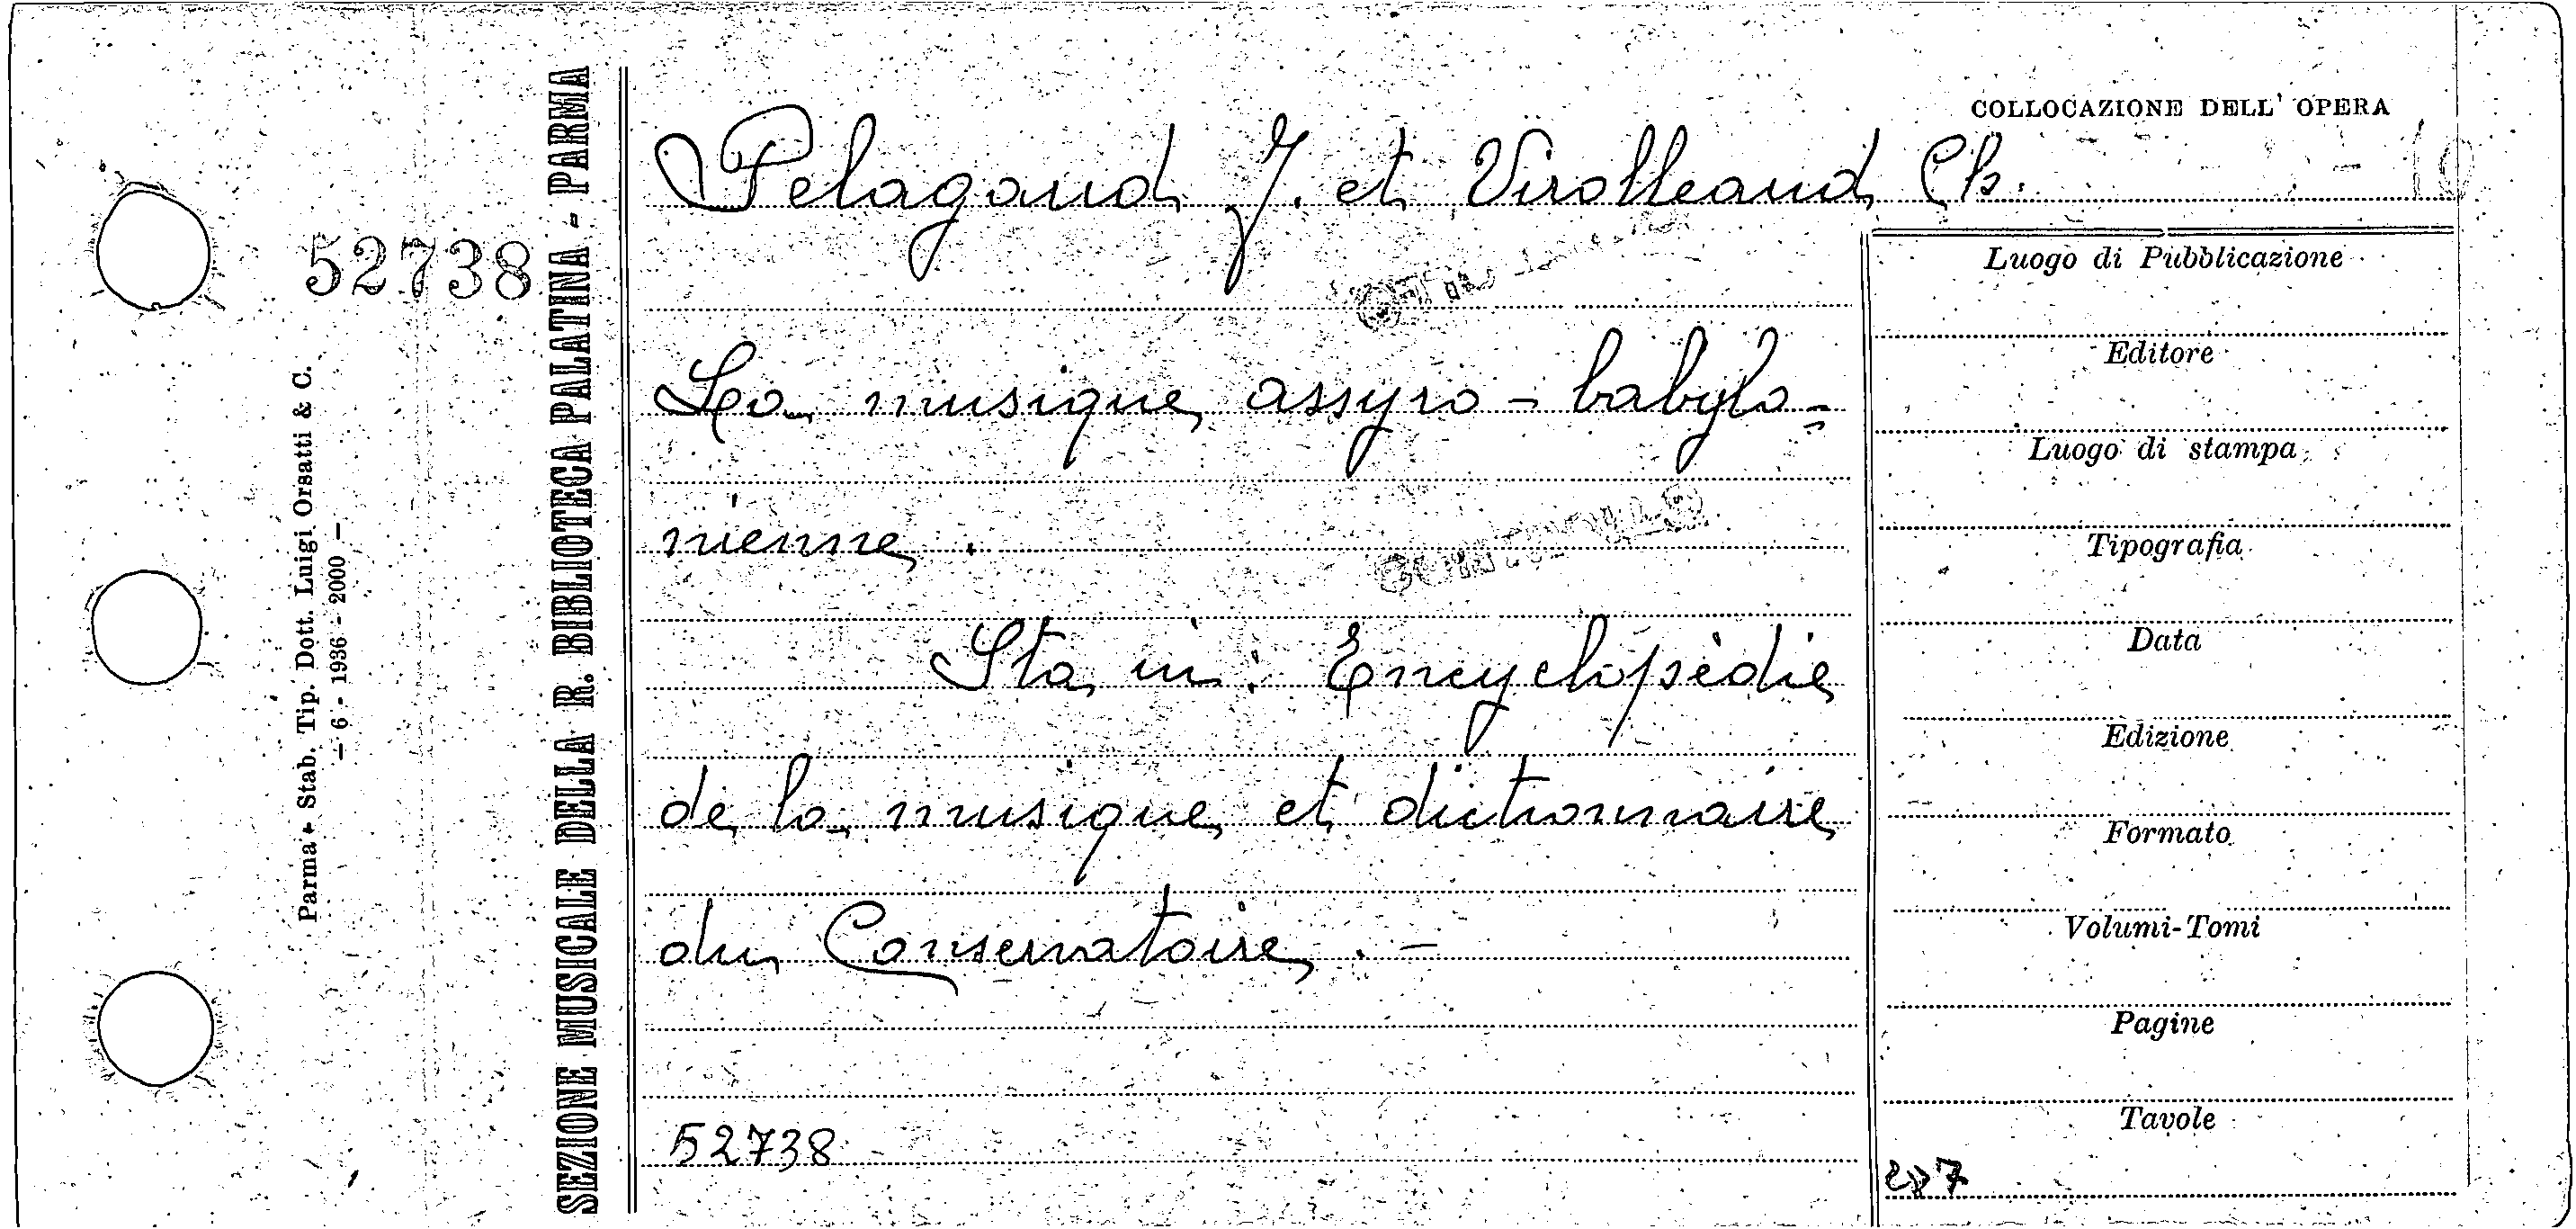 COLLOCAZIONE DELL' OPERA
Pelagaud F. et Virolleaud Ch.
52738
La musique assyro - babylo-
nienne .
Sta in : Encyclopèdie
de la musique et dictionnaire
du Conservatoire . -
52738
Luogo di Pubblicazione
Editore
Luogo di stampa
Tipografia
Data
Edizione
Formato
Volumi-Tomi
Pagine
Tavole
SEZIONE MUSICALE DELLA R. BIBLIOTECA PALATINA - PARMA
Parma - Stab. Tip. Dott. Luigi Orsatti & C.
- 6 - 1936 - 2000 -